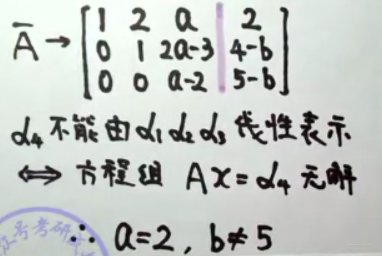 Ā → [1 2 a | 2
0 1 2a-3 | 4-b
0 0 a-2 | 5-b]
α₄不能由α₁α₂α₃线性表示
⇔ 方程组 Ax=α₄ 无解
∴ a=2, b≠5
号考研